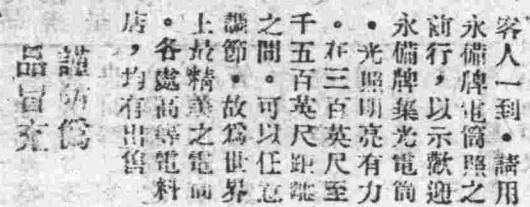 客人一到。請用
永備牌電筒照之
前行，以示歡迎
永備牌集光電筒
。光照明亮有力
。在三百英尺至
千五百英尺距離
之間。可以任意
調節。故爲世界
上最精美之電筒
。各處高等電料
店，均有出售
謹防僞
品冒充